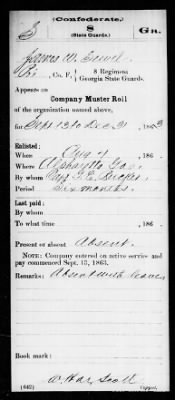 (Confederate.)
S 8 Gn.
(State Guards.)
James W.
Co. F, 8 Regiment
Georgia State Guards.
Appears on
Company Muster Roll
of the organization named above,
for Sept 13 to Dec 31, 1863
Enlisted:
When Aug 4, 186
Where Alpharetta Ga.
By whom Capt.
Period Six months.
Last paid:
By whom
To what time , 186 .
Present or absent Absent.
NOTE: Company entered on active service and
pay commenced Sept. 13, 1863.
Remarks: Absent with leave
Book mark:
(642) Copyist.